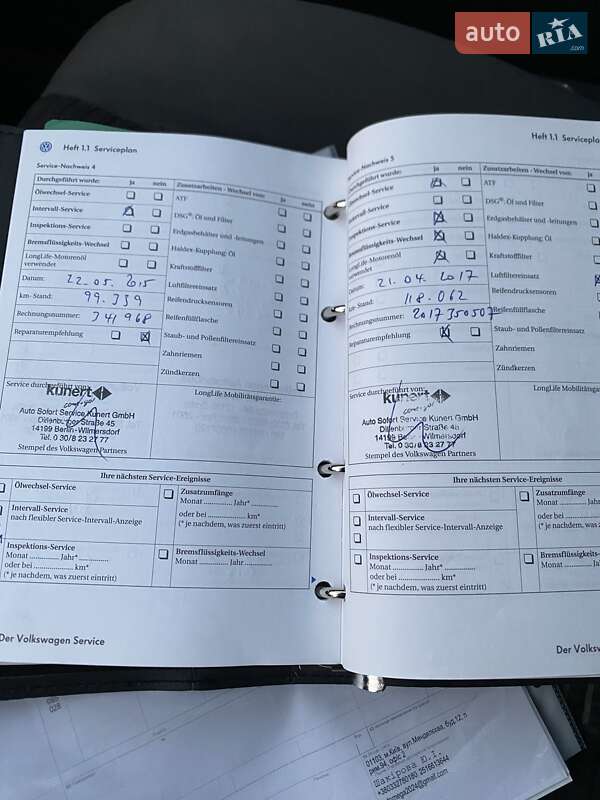 auto RIA .com
Heft 1.1 Serviceplan
Service-Nachweis 4
Durchgeführt wurde: ja nein
Zusatzarbeiten - Wechsel von: ja nein
Ölwechsel-Service
ATF
Intervall-Service
DSG®: Öl und Filter
Inspektions-Service
Erdgasbehälter und -leitungen
Bremsflüssigkeits-Wechsel
Haldex-Kupplung: Öl
LongLife-Motorenöl
verwendet
Kraftstofffilter
Datum: 22.05.2015
Luftfiltereinsatz
km-Stand: 99.339
Reifendrucksensoren
Rechnungsnummer: 341968
Reifenfüllflasche
Reparaturempfehlung
Staub- und Pollenfiltereinsatz
Zahnriemen
Zündkerzen
Service durchgeführt von:
LongLife Mobilitätsgarantie:
kunert
Auto Sofort Service Kunert GmbH
Dillenburger Straße 45
14199 Berlin-Wilmersdorf
Tel. 0 30/8 23 27 77
Stempel des Volkswagen Partners
Ihre nächsten Service-Ereignisse
Ölwechsel-Service
Zusatzumfänge
Monat Jahr*
oder bei km*
(* je nachdem, was zuerst eintritt)
Intervall-Service
nach flexibler Service-Intervall-Anzeige
Inspektions-Service
Monat Jahr*
oder bei km*
(* je nachdem, was zuerst eintritt)
Bremsflüssigkeits-Wechsel
Monat Jahr
Der Volkswagen Service
Heft 1.1 Serviceplan
Service-Nachweis 5
Durchgeführt wurde: ja nein
Zusatzarbeiten - Wechsel von:
Ölwechsel-Service
ATF
Intervall-Service
DSG®: Öl und Filter
Inspektions-Service
Erdgasbehälter und -leitungen
Bremsflüssigkeits-Wechsel
Haldex-Kupplung: Öl
LongLife-Motorenöl
verwendet
Kraftstofffilter
Datum: 21.04.2017
Luftfiltereinsatz
km-Stand: 118.062
Reifendrucksensoren
Rechnungsnummer: 2017350507
Reifenfüllflasche
Reparaturempfehlung
Staub- und Pollenfiltereinsatz
Zahnriemen
Zündkerzen
Service durchgeführt von:
LongLife Mobilitätsg
kunert
Auto Sofort Service Kunert GmbH
Dillenburger Straße 45
14199 Berlin-Wilmersdorf
Tel. 0 30/8 23 27 77
Stempel des Volkswagen Partners
Ihre nächsten Service-Ereignisse
Ölwechsel-Service
Zusatzumfänge
Monat
oder bei
(* je nachdem, was
Intervall-Service
nach flexibler Service-Intervall-Anzeige
Inspektions-Service
Monat Jahr*
oder bei km*
(* je nachdem, was zuerst eintritt)
Bremsflüssigkeits-
Monat Ja
Der Volksw
028
01103, м.Київ, вул.Менделєєва, буд.12,п
рим.94, офіс 2
Шакірова Ю.І.
+380332760180 2516613644